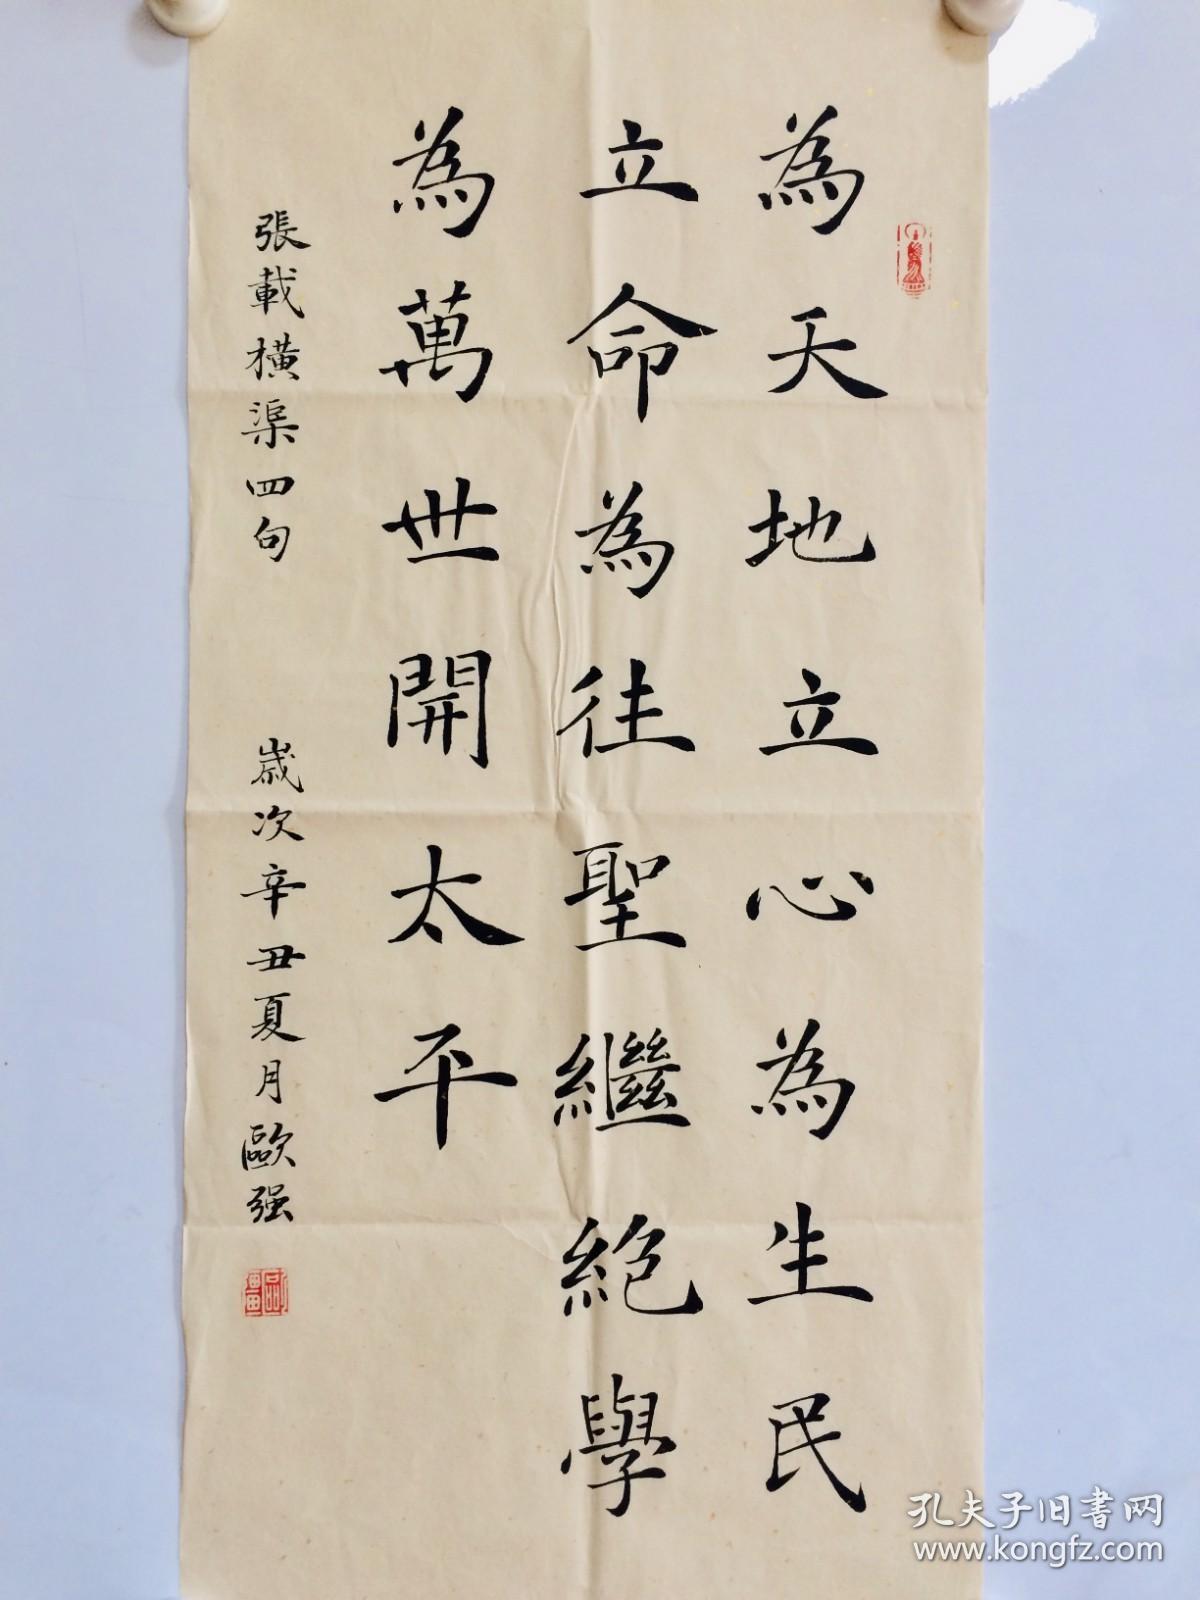 為天地立心為生民
立命為往聖繼絕學
為萬世開太平
張載橫渠四句
歲次辛丑夏月歐强
孔夫子旧書网
www.kongfz.com